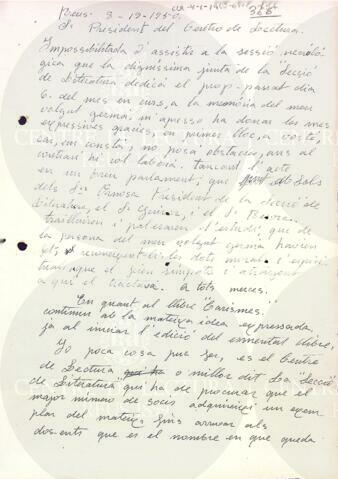 Reus. 9-12-1950.
366
Sr President del Centro de Lectura.
Impossibilitada d'assistir a la sessió necrolò-
gica que la digníssima junta de la Secció
de Literatura dedicà el prop-passat dia
6. del mes en curs, a la memòria del meu
volgut germà, m'apresso ha donar les mes
expressives gracies, en primer lloc a vostè,
car, em consta, no posa obstacles, ans al
contrari hi col·laborà, tancant l'acte
en un breu parlament; que als Sols
dels Srs President de la Secció de
Literatura, el Sr i el Sr
i palesaren d'estudi, que de
la persona del meu volgut germà havien
fet, reconeguts les dots morals i
que el feien simpàtic i atraient
a qui el tractava. A tots merces.
En quant al llibre "Carismes."
continuo ab la mateixa idea expressada
ja al iniciar l'edició del esmentat llibre,
Jo poca cosa puc fer, es el Centre
de Lectura o millor dit la "Secció
de Literatura" qui ha de procurar que el
major número de socis adquireixi un exem-
plar del mateix, fins arrivar als
dos-cents que es el nombre en que queda